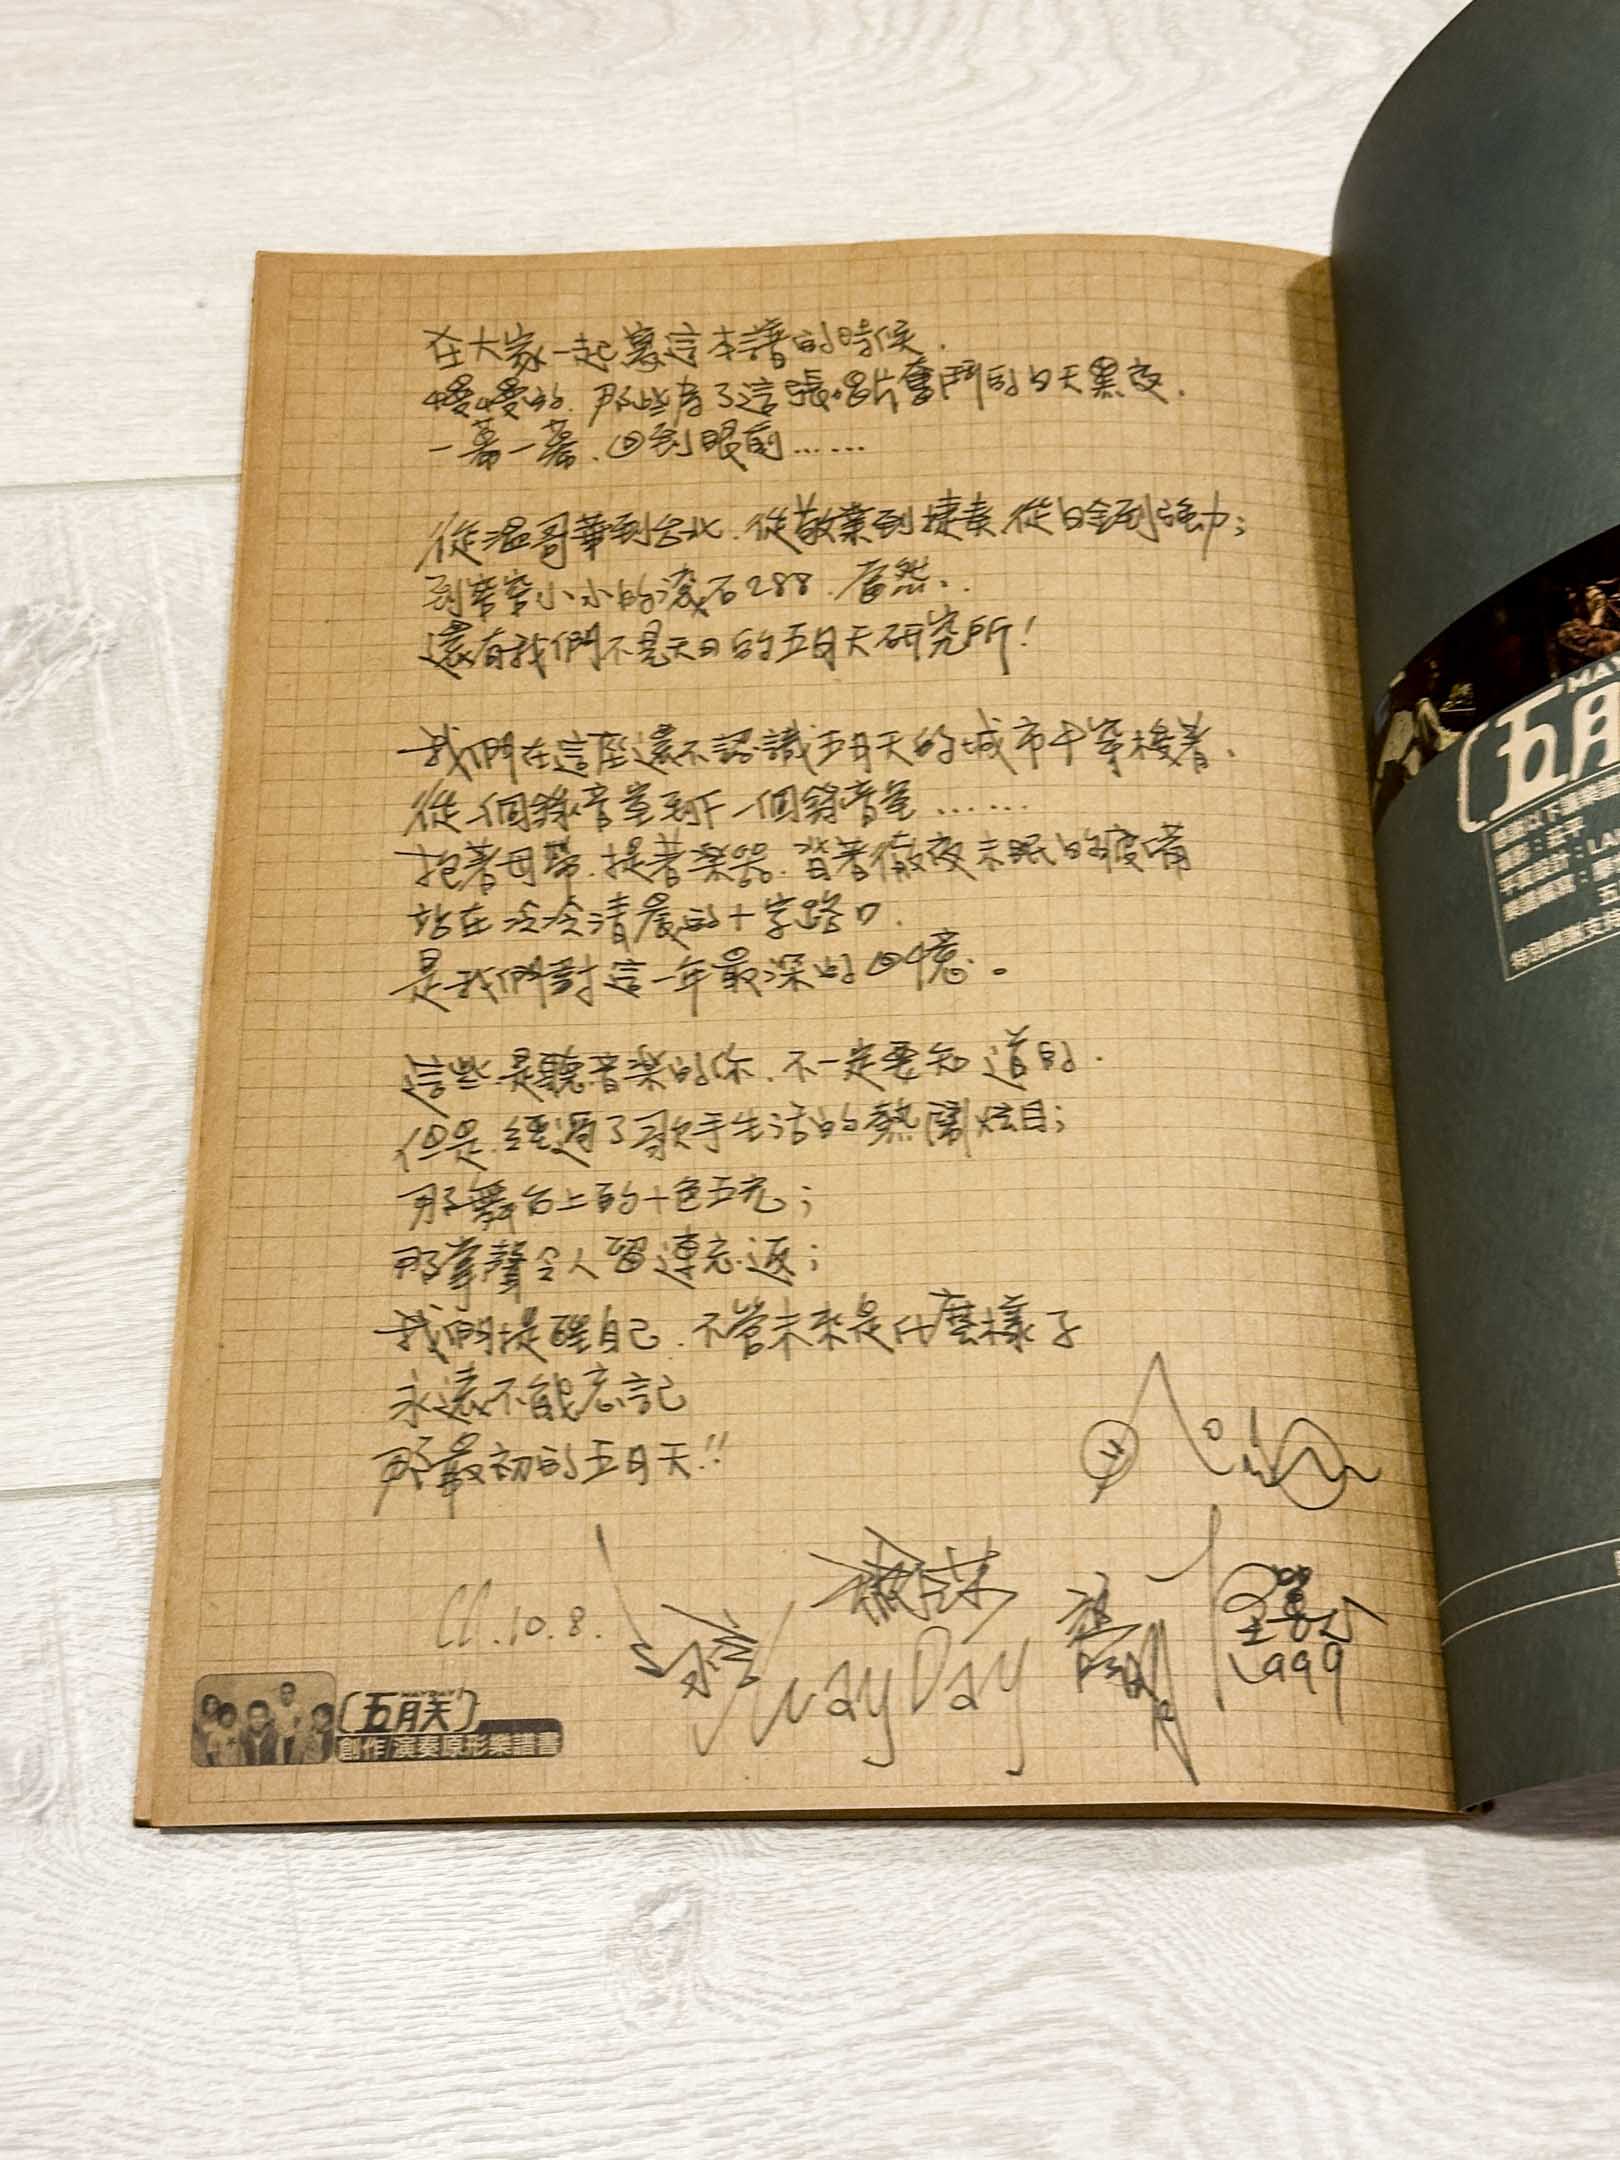 在大家一起寫這本譜的時候.
慢慢的.那些為了這張唱片奮鬥的白天黑夜.
一幕一幕.回到眼前……
從溫哥華到台北.從敬業到捷奏.從白金到強力;
到窄窄小小的滾石288.當然..
還有我們不見天日的五月天研究所!
我們在這座還不認識五月天的城市中穿梭著.
從一個錄音室到下一個錄音室……
抱著母帶.提著樂器.背著徹夜未眠的疲憊
站在冷冷清晨的十字路口.
是我們對這一年最深的回憶。
這些是聽音樂的你.不一定要知道的.
但是.經過了歌手生活的熱鬧炫目;
那舞台上的十色五光;
那掌聲令人留連忘返;
我們提醒自己.不管未來是什麼樣子
永遠不能忘記
那最初的五月天!!
10.8.
MayDay
1999
MAYDAY
五月天
創作/演奏原形樂譜書
MAY
五月